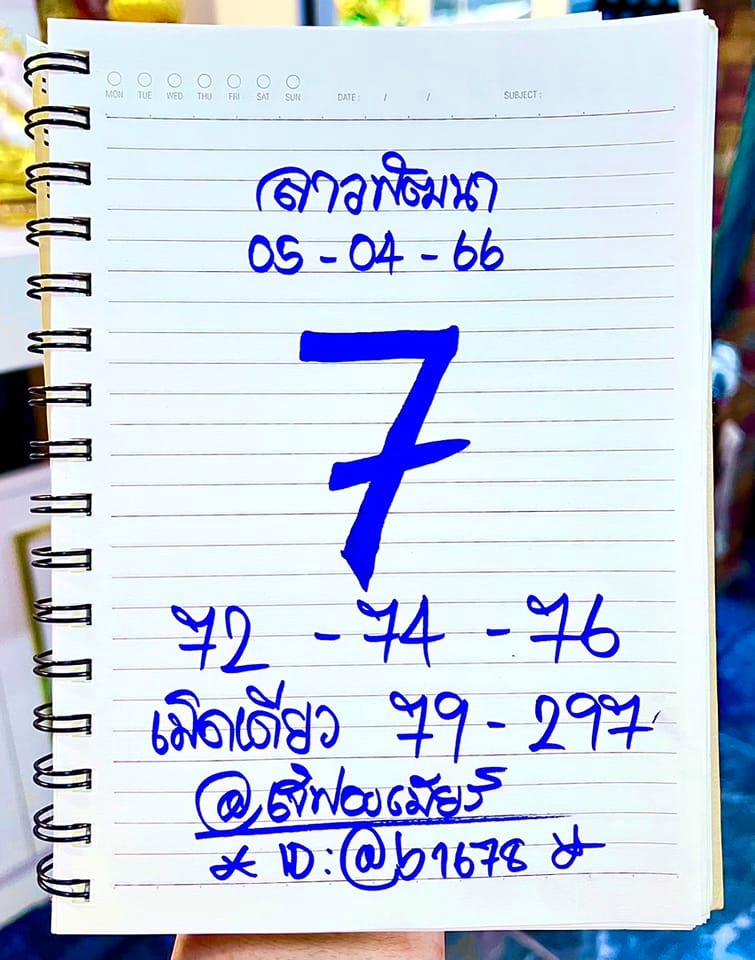 MON TUE WED THU FRI SAT SUN DATE : / / SUBJECT :
ลาวพัฒนา
05 - 04 - 66
7
72 - 74 - 76
เม็ดเดียว 79 - 297
ID : @b1678